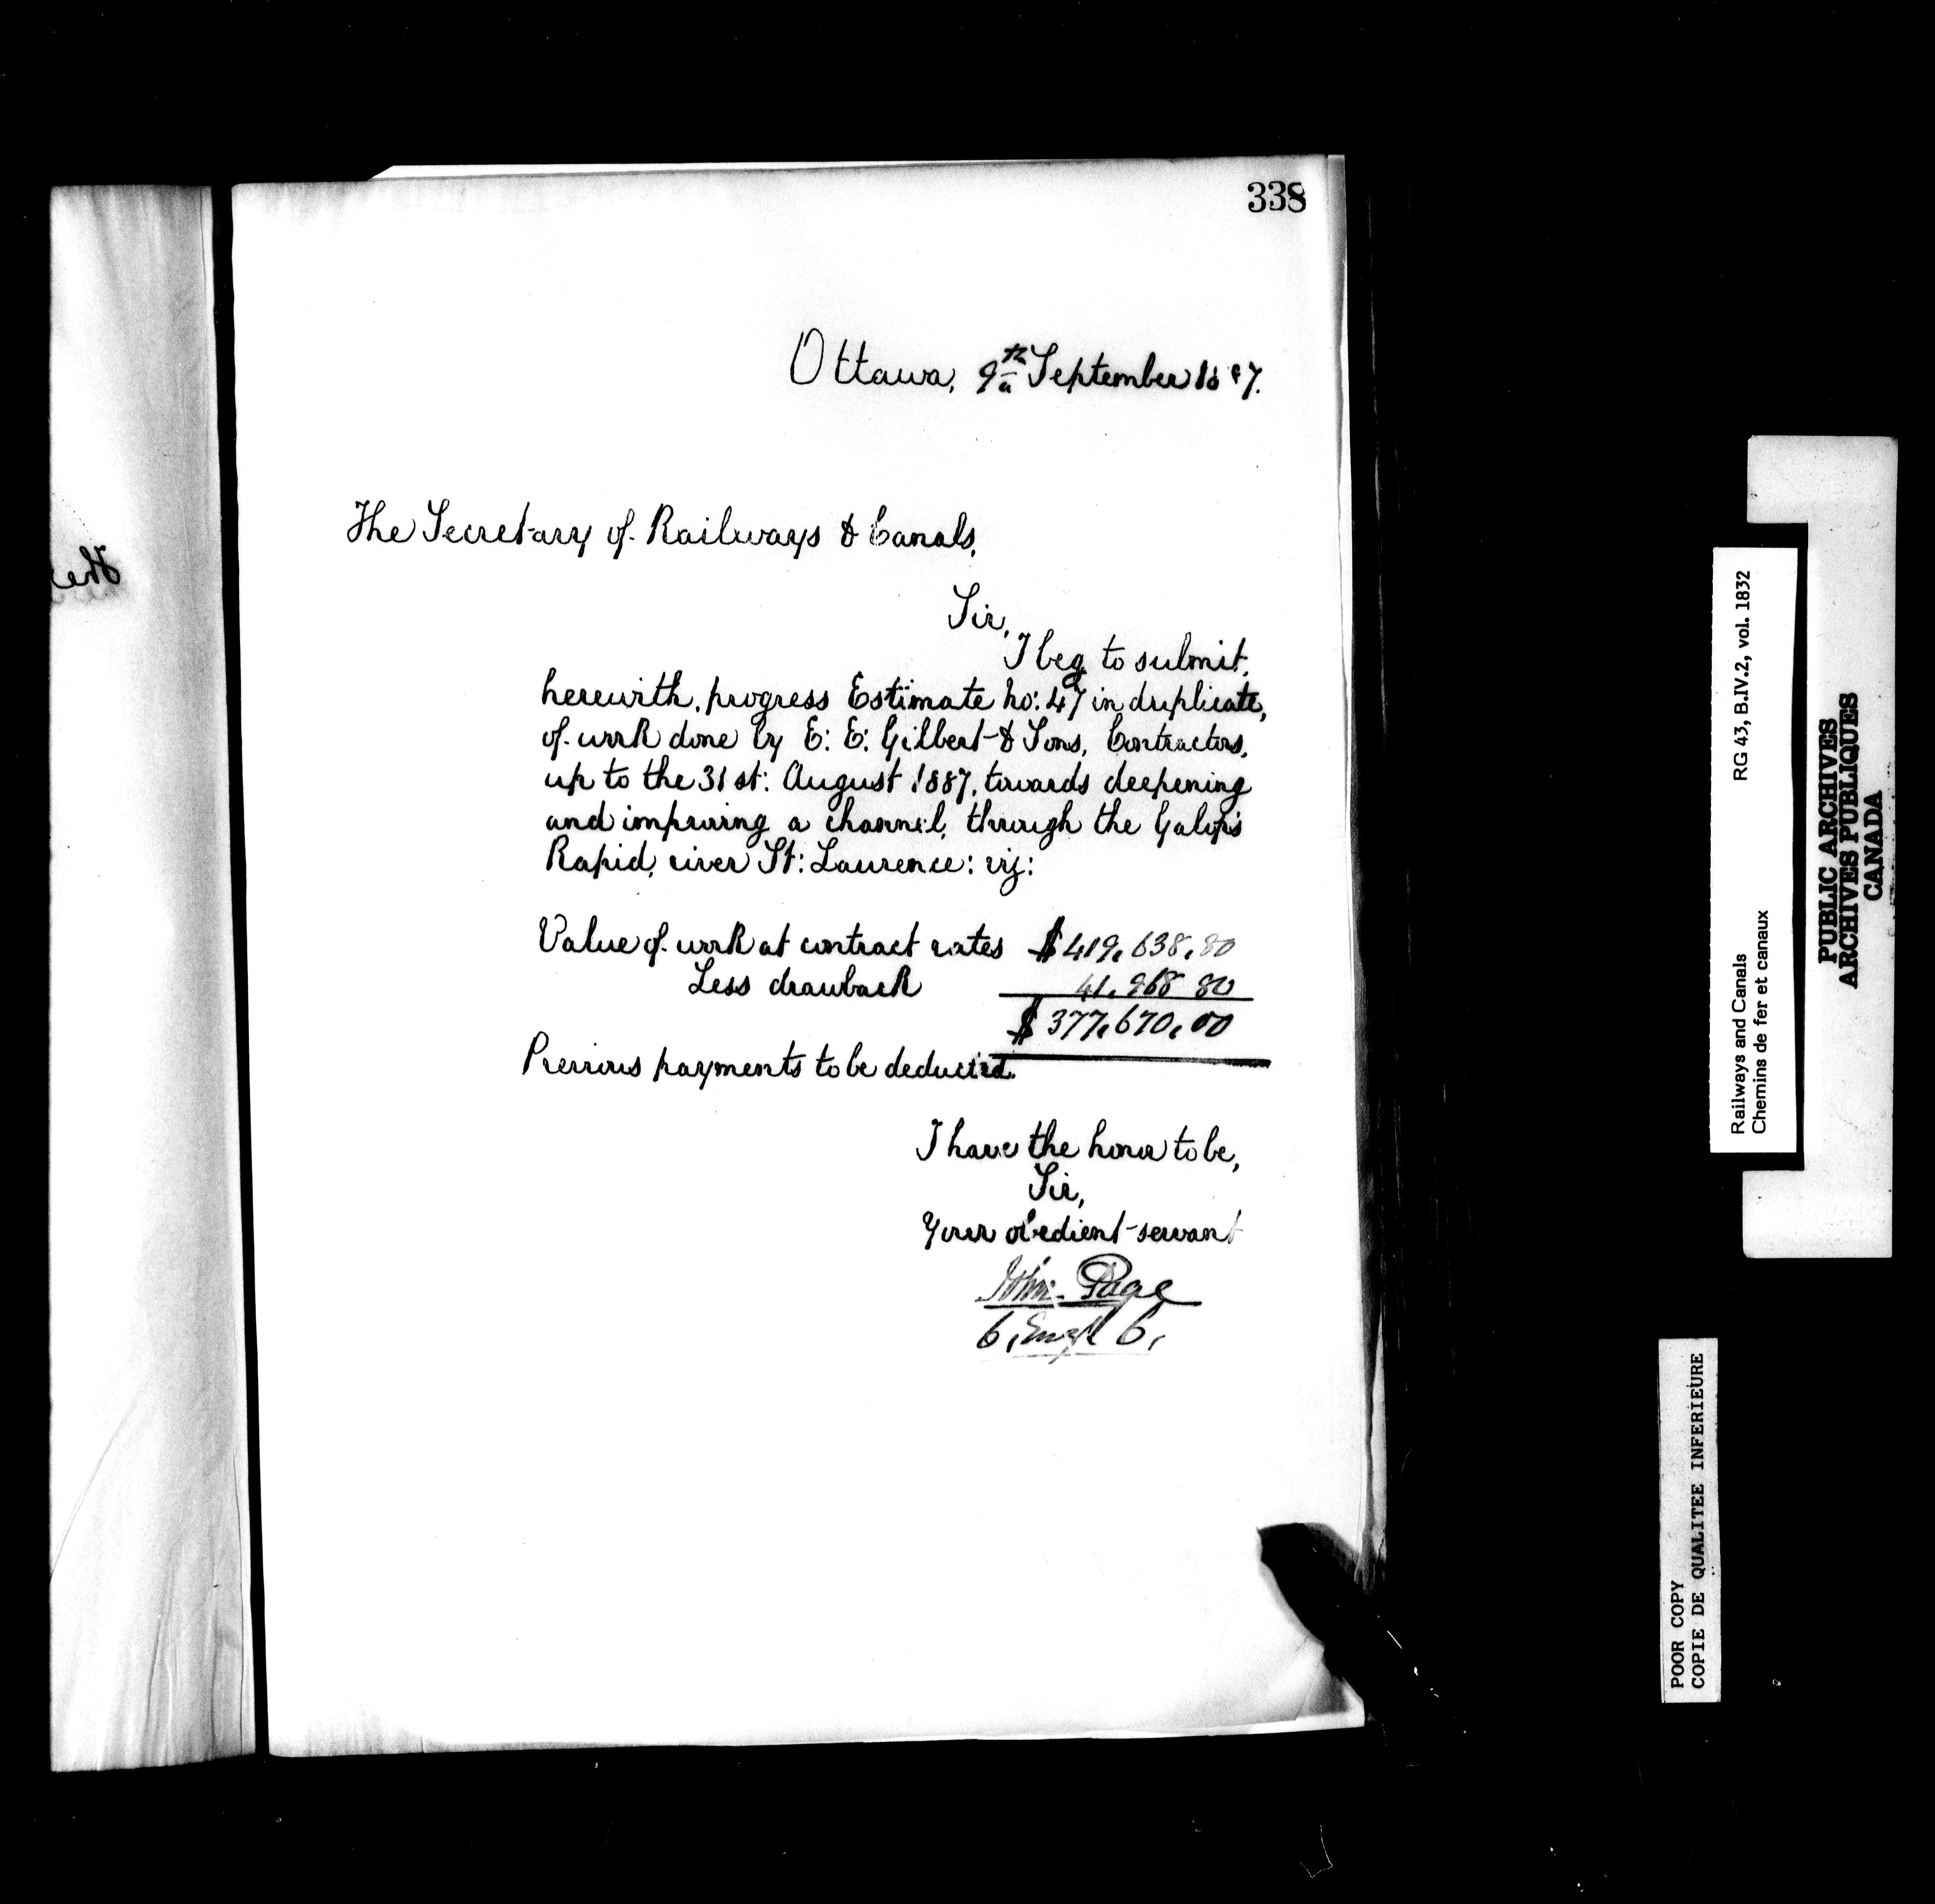 338
Ottawa, 9th September 1887.
The Secretary of Railways & Canals,
Sir,
I beg to submit,
herewith, progress Estimate No: 47 in duplicate,
of work done by E: E: Gilbert & Sons, Contractors,
up to the 31st: August 1887, towards deepening
and improving a channel, through the Galops
Rapid, river St: Laurence: viz:
Value of work at contract rates $419,638,80
Less drawback 41,968 80
$377,670,00
Previous payments to be deducted.
I have the honor to be,
Sir,
Your obedient servant
John Page
C, Engr C,
The
Railways and Canals RG 43, B.IV.2, vol. 1832
Chemins de fer et canaux
PUBLIC ARCHIVES
ARCHIVES PUBLIQUES
CANADA
POOR COPY
COPIE DE QUALITEE INFERIEURE